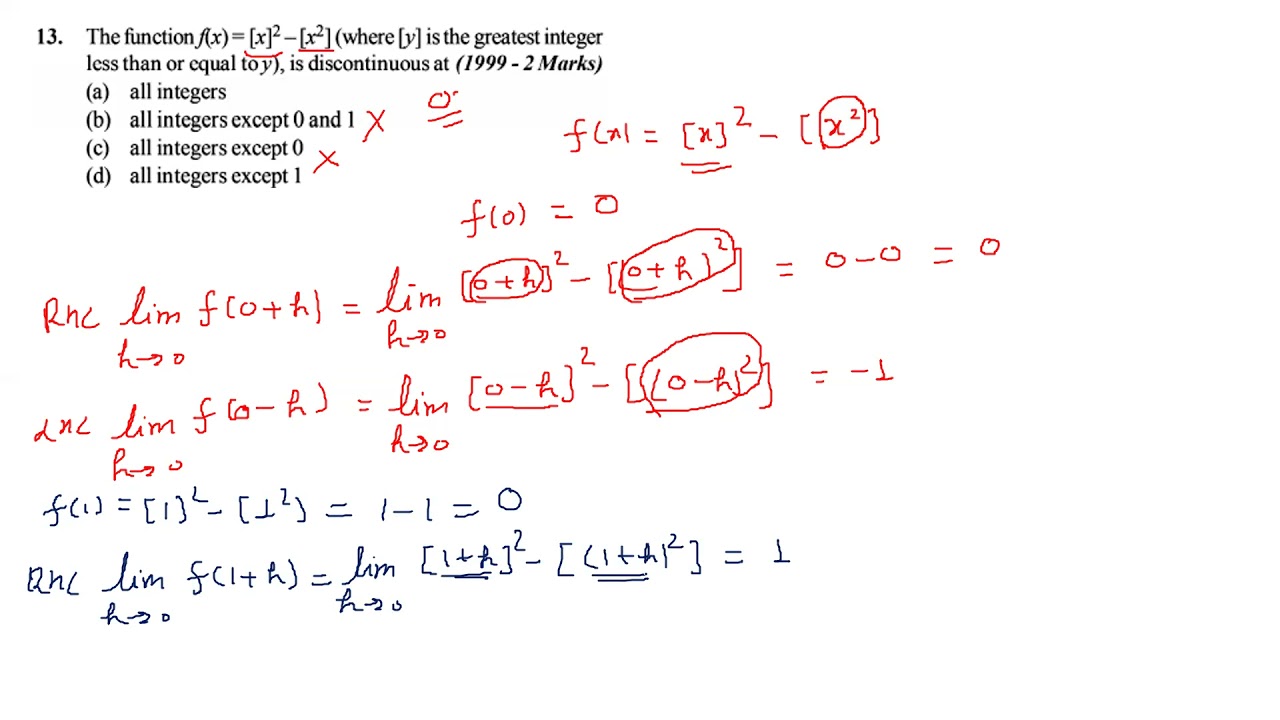 13. The function f(x) = [x]² – [x²] (where [y] is the greatest integer
less than or equal to y), is discontinuous at (1999 - 2 Marks)
(a) all integers
(b) all integers except 0 and 1 ×
(c) all integers except 0 ×
(d) all integers except 1
0
f(x) = [x]² – [x²]
f(0) = 0
RHL lim h→0 f(0+h) = lim h→0 [0+h]² – [(0+h)²] = 0–0 = 0
LHL lim h→0 f(0–h) = lim h→0 [0–h]² – [(0–h)²] = –1
f(1) = [1]² – [1²] = 1–1 = 0
RHL lim h→0 f(1+h) = lim h→0 [1+h]² – [(1+h)²] = 1